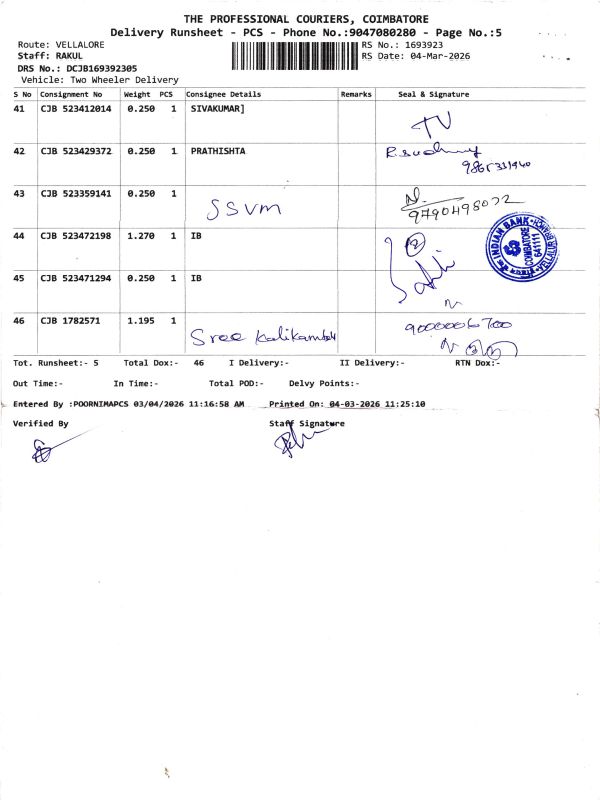 THE PROFESSIONAL COURIERS, COIMBATORE
Delivery Runsheet - PCS - Phone No.:9047080280 - Page No.:5
Route: VELLALORE RS No.: 1693923
Staff: RAKUL RS Date: 04-Mar-2026
DRS No.: DCJB169392305
Vehicle: Two Wheeler Delivery
S No Consignment No Weight PCS Consignee Details Remarks Seal & Signature
41 CJB 523412014 0.250 1 SIVAKUMAR]
42 CJB 523429372 0.250 1 PRATHISHTA
43 CJB 523359141 0.250 1 SSVM
9790498022
44 CJB 523472198 1.270 1 IB 2
INDIAN BANK COIMBATORE 641111
45 CJB 523471294 0.250 1 IB
46 CJB 1782571 1.195 1 Sree 9000006700
Tot. Runsheet:- 5 Total Dox:- 46 I Delivery:- II Delivery:- RTN Dox:-
Out Time:- In Time:- Total POD:- Delvy Points:-
Entered By :POORNIMAPCS 03/04/2026 11:16:58 AM Printed On: 04-03-2026 11:25:10
Verified By Staff Signature